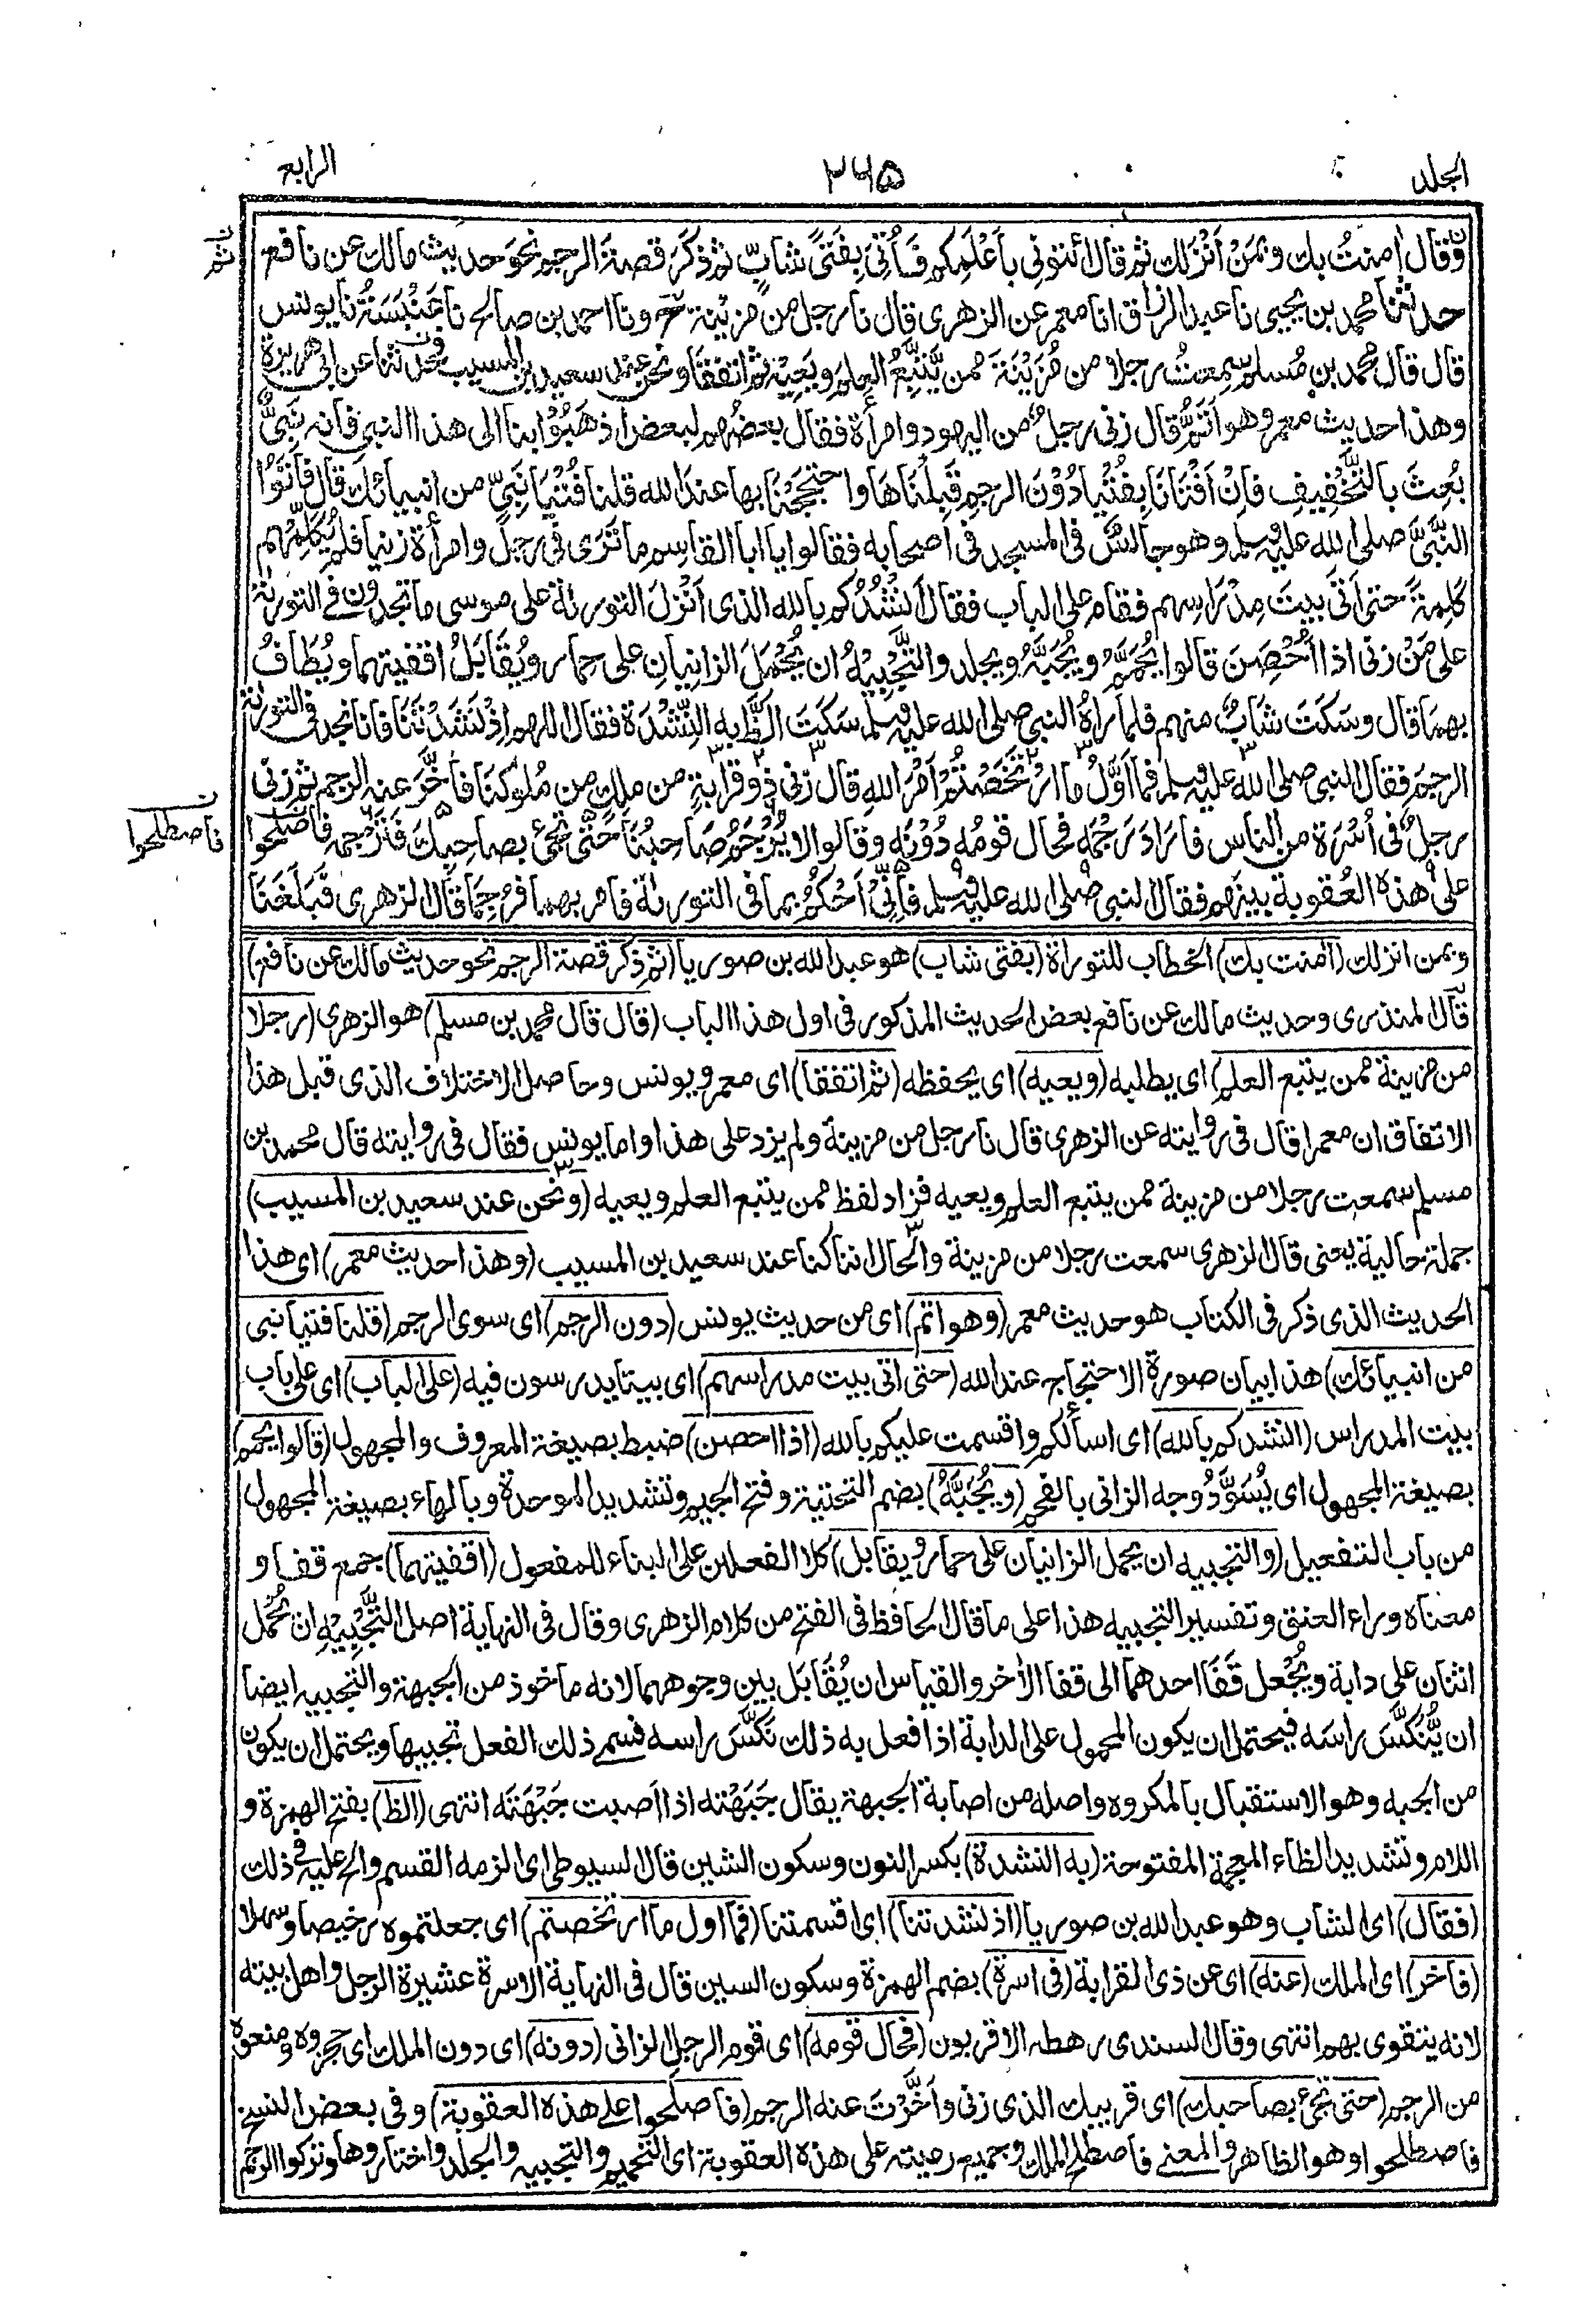 الجلد
٢٦٥
الرابع
وقال اٰمنتُ بك وبمَنْ اَنْزَلك ثم قال ائتونى بأَعْلَمِكم فَأُتِىَ بِفَتًى شابٍّ ثم ذكَرَ قصةَ الرجم نحوَ حديث مالك عن نافع
ثم
حدثنا محمد بن يحيى نا عبد الرزاق انا معمر عن الزهرى قال نا رجل من مزينة ح ونا احمد بن صالح نا عَنْبَسَةُ نا يونس
قال قال محمد بن مُسلم سمعتُ رجلا من مُزَيْنَةَ ممن يَّتَّبِعُ العلم ويَعِيْه ثم اتفقا ونحن عند سعيد بن المسيب فحدثنا عن ابى هريرة
وهذا حديث معمر وهو اَتَمُّ قال زنى رجلٌ من اليهود وامرأة فقال بعضُهم لبعض اذهَبُوْا بنا الى هذا النبى فانه نَبِىٌّ
بُعِثَ بالتَّخْفِيفِ فاِنْ اَفْتَانَا بِفُتْيا دُوْنَ الرجم قَبِلْنَاهَا واحتججْنَا بها عندَ الله قلنا فُتْيَا نَبِىٍّ من انبيائك قال فاَتَوُا
النَّبِىَّ صلى الله عليه وسلم وهو جالسٌ فى المسجد فى اصحابه فقالوا يا ابا القاسم ما تَرٰى فى رجل وامرأة زنيا فلم يُكَلِّمْهم
كَلِمَةً حتى اَتٰى بيتَ مِدْرَاسِهم فقام على الباب فقال اَنْشُدُكم بالله الذى اَنْزَلَ التورٰىةَ على موسى ما تجدون فى التورٰىة
على مَنْ زنى اذا اُحْصِنَ قالوا يُحَمَّمُ ويُجَبَّهُ ويجلد والتَّجْبِيْهُ ان يُّحْمَلَ الزانِيانِ على حمار ويُقَابَلُ اقفيتهما ويُطَافُ
بهما قال وسَكَتَ شابٌّ منهم فلما رَاٰهُ النبى صلى الله عليه وسلم سَكَتَ اَلَظَّ به النِّشْدَةَ فقال اللهم اِذْ نَشَدْتَنَا فانا نجد فى التورٰىة
الرجمَ فقال النبى صلى الله عليه وسلم فما اَوَّلُ ما ارْتَخَصْتُمْ اَمْرَ اللهِ قال زنى ذو قرابةٍ من ملك من مُلُوكنَا فاَخَّرَ عنه الرجم ثم زنى
رجلٌ فى اُسْرَة من الناس فاراد رَجْمَه فحال قومُه دُوْنَه وقالوا لا يُرْجَمُ صَاحِبُنَا حتّٰى تجىْءَ بصاحِبِكَ فَتَرْجمه فاصْلَحوا
فاصطلحوا
على هذه العُقوبة بينهم فقال النبى صلى الله عليه وسلم فاِنِّىْ اَحْكُمُ بما فى التورٰىة فامر بهما فرُجِمَا قال الزهرى فَبَلَغَنَا
وبمن انزلك (اٰمنت بك) الخطاب للتوراة (بفتى شاب) هو عبد الله بن صوريا (ثم ذكر قصة الرجم نحو حديث مالك عن نافع)
قال المنذرى وحديث مالك عن نافع بعض الحديث المذكور فى اول هذا الباب (قال قال محمد بن مسلم) هو الزهرى (رجلا
من مزينة ممن يتبع العلم) اى يطلبه (ويعيه) اى يحفظه (ثم اتفقا) اى معمر ويونس وحاصل الاختلاف الذى قبل هذا
الاتفاق ان معمرا قال فى روايته عن الزهرى قال نا رجل من مزينة ولم يزد على هذا واما يونس فقال فى روايته قال محمد بن
مسلم سمعت رجلا من مزينة ممن يتبع العلم ويعيه فزاد لفظ ممن يتبع العلم ويعيه (ونحن عند سعيد بن المسيب)
جملة حالية يعنى قال الزهرى سمعت رجلا من مزينة والحال اننا كنا عند سعيد بن المسيب (وهذا حديث معمر) اى هذا
الحديث الذى ذكر فى الكتاب هو حديث معمر (وهو اتم) اى من حديث يونس (دون الرجم) اى سوى الرجم (قلنا فتيا نبى
من انبيائك) هذا بيان صورة الاحتجاج عند الله (حتى اتى بيت مدراسهم) اى بيتا يدرسون فيه (على الباب) اى على باب
بيت المدراس (انشدكم بالله) اى اسألكم واقسمت عليكم بالله (اذا احصن) ضبط بصيغة المعروف والمجهول (قالوا يحمم)
بصيغة المجهول اى يُسَوَّدُ وجه الزانى بالفحم (ويُجَبَّهُ) بضم التحتية وفتح الجيم وتشديد الموحدة وبالهاء بصيغة المجهول
من باب التفعيل (والتجبيه ان يحمل الزانيان على حمار ويقابل) كلا الفعلين على البناء للمفعول (اقفيتهما) جمع قفا و
معناه وراء العنق وتفسير التجبيه هذا على ما قال الحافظ فى الفتح من كلام الزهرى وقال فى النهاية اصل التَّجْبِيْهِ ان يُحْمل
اثنان على دابة ويُجْعل قَفَا احدهما الى قفا الاٰخر والقياس ان يُقَابَل بين وجوههما لانه ماخوذ من الجبهة والتجبيه ايضا
ان يُّنَكَّسَ راسَه فيحتمل ان يكون المحمول على الدابة اذا فعل به ذلك نَكَّسَ راسه فسمى ذلك الفعل تجبيها ويحتمل ان يكون
من الجبه وهو الاستقبال بالمكروه واصله من اصابة الجبهة يقال جَبَهْته اذا اصبت جَبْهَتَه انتهى (الظ) بفتح الهمزة و
اللام وتشديد الظاء المعجمة المفتوحة (به النشدة) بكسر النون وسكون الشين قال السيوطى اى الزمه القسم والح عليه فى ذلك
(فقال) اى الشاب وهو عبد الله بن صوريا (اذ نشدتنا) اى اقسمتنا (فما اول ما ارتخصتم) اى جعلتموه رخيصا وسهلا
(فاخر) اى الملك (عنه) اى عن ذى القرابة (فى اسرة) بضم الهمزة وسكون السين قال فى النهاية الاسرة عشيرة الرجل واهل بيته
لانه يتقوى بهم انتهى وقال السندى رهطه الاقربون (فحال قومه) اى قوم الرجل الزانى (دونه) اى دون الملك اى حجروه ومنعوه
من الرجم (حتى تجىء بصاحبك) اى قريبك الذى زنى واَخَّرْتَ عنه الرجم (فاصلحوا على هذه العقوبة) وفى بعض النسخ
فاصطلحوا وهو الظاهر والمعنى فاصطلح الملك وجميع رعيته على هذه العقوبة اى التحميم والتجبيه والجلد واختاروها وتركوا الرجم